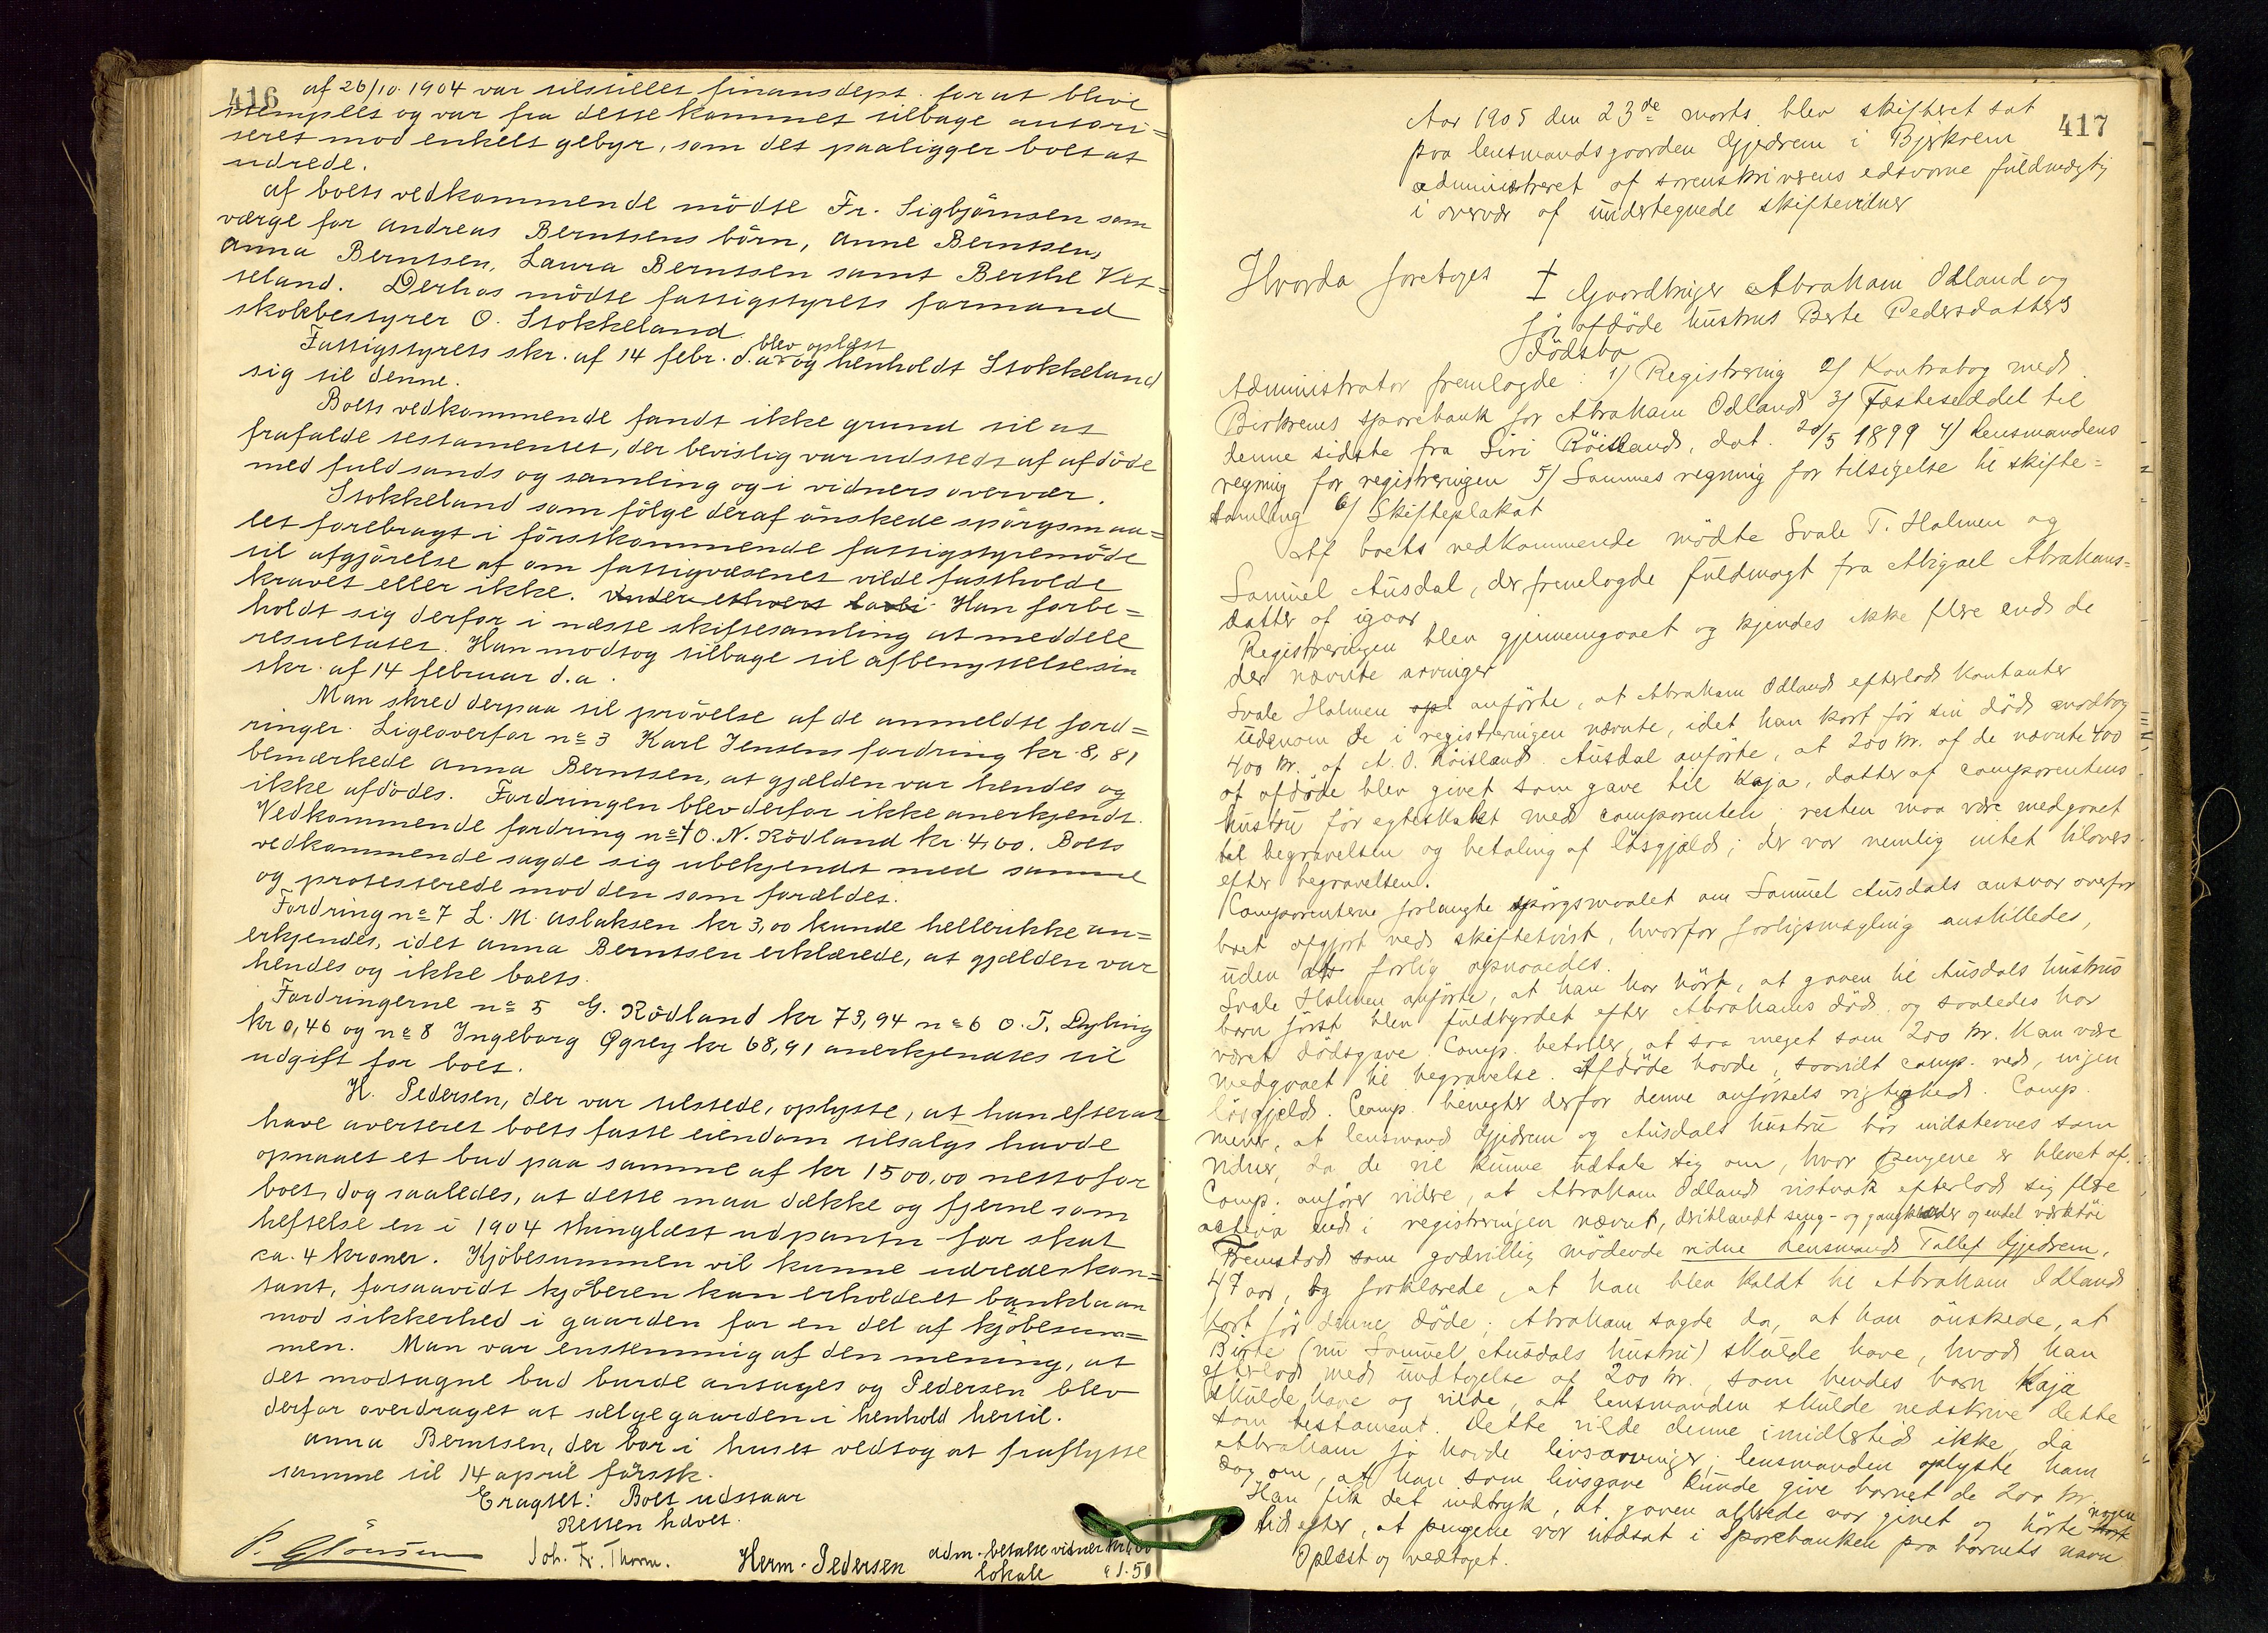 416
af 26/10. 1904 var tilstillet finansdept. for at blive
stemplet og var fra dette kommet tilbage autori=
seret mod enkelt gebyr, som det paaligger boet at
udrede.
Af boets vedkommende mödte Fr. Sigbjörnsen som
værge for Andreas Berntsens börn, Anne Berntsen,
Anna Berntsen, Laura Berntsen samt Berthe Vet=
teland. Derhos mödte fattigstyrets formand
skolebestyrer O. Stokkeland.
Fattigstyrets skr. af 14 febr. d. a. blev oplæst og henholdt Stokkeland
sig til denne.
Boets vedkommende fandt ikke grund til at
frafalde testamentet, der bevislig var udstedt af afdöde
med fuld sands og samling og i vidners overvær.
Stokkeland som fölge deraf önskede spörgsmaa=
let forebragt i förstkommende fattigstyremöde
til afgjörelse af om fattigvæsenet vilde fastholde
kravet eller ikke. Under ethvert Han forbe=
holdt sig derfor i næste skiftesamling at meddele
resultatet. Han modtog tilbage til afbenyttelse sin
skr. af 14 februar d.a.
Man skred derpaa til prövelse af de anmeldte ford=
ringer. Ligeoverfor no 3 Karl Jensens fordring kr. 8,81
bemærkede Anna Berntsen, at gjælden var hendes og
ikke afdödes. Fordringen blev derfor ikke anerkjendt.
Vedkommende fordring no 4 O. N. Rödland kr. 4,00. Boets
vedkommende sagde sig ubekjendt med samme
og protesterede mod den som forældet.
Fordring no 7 L. M. Aslaksen kr 3,00 kunde heller ikke an=
erkjendes, idet Anna Berntsen erklærede, at gjælden var
hendes og ikke boets.
Fordringerne no 5 G. Rödland kr 73,94 no 6 O. T. Dyling
kr 0,46 og no 8 Ingeborg Ögrey kr 68,91 anerkjendtes til
udgift for boet.
H. Pedersen, der var tilstede, oplyste, at han efter at
have averteret boets faste eiendom tilsalgs havde
opnaaet et bud paa samme af kr 1500,00 netto for
boet, dog saaledes, at dette maa dække og fjerne som
heftelse en i 1904 thinglæst udpantn. for skat
ca. 4 kroner. Kjöbesummen vil kunne udredes kon=
tant, forsaavidt kjöberen kan erholde et banklaan
mod sikkerhed i gaarden for en del af kjöbesum=
men. Man var enstemmig af den mening, at
det modtagne bud burde antages og Pedersen blev
derfor overdraget at sælge gaarden i henhold hertil.
Anna Berntsen, der bor i huset vedtog at fraflytte
samme til 14 april förstk.
Eragtet: Boet udstaar
Retten hævet.
Joh. Fr. Thorm. Herm. Pedersen adm. betalte vidner kr 1,00
lokale " 1.50
417
Aar 1905 den 23de marts blev skifteret sat
paa lensmandsgaarden Gjedrem i Bjerkrem
administreret af sorenskriverens edsvorne fuldmægtig
i overvær af undertegnede skiftevidner
Hvorda foretoges
Gaardbruger Abraham Odland og
för afdöde hustrus Berte Pedersdatters
dödsbo
Administrator fremlagde: 1/ Registrering 2/ Kontrabog med
Birkrems sparebank for Abraham Odland 3/ Fæsteseddel til
denne sidste fra Siri Röisland, dat. 20/5 1899 4/ Lensmandens
regning for registreringen 5/ Sammes regning for tilsigelse til skifte=
samling 6/ Skifteplakat
Af boets vedkommende mödte Svale T. Holmen og
Samuel Ausdal, der fremlagde fuldmagt fra Abigael Abrahams=
datter af igaar
Registreringen blev gjennemgaaet og kjendes ikke flere end de
der nævnte arvinger
Svale Holmen opl anförte, at Abraham Odland efterlod kontanter
udenom de i registreringen nævnte, idet han kort för sin död modtog
400 kr. af A. O. Röisland. Ausdal anförte, at 200 kr. af de nævnte 400
af afdöde blev givet som gave til Kaja, datter af comparentens
hustru för egteskabet med comparenten; resten maa være medgaaet
til begravelsen og betaling af lösgjæld; der var nemlig intet tilovers
efter begravelsen.
Comparenterne forlangte spörgsmaalet om Samuel Ausdals ansvar overfor
boet afgjort ved skiftetvist, hvorfor forligsmægling anstilledes,
uden at forlig opnaaedes.
Svale Holmen anförte, at han har hört, at gaven til Ausdals hustrus
barn först blev fuldbyrdet efter Abrahams död og saaledes har
været dödsgave. Comp. betviler, at saa meget som 200 kr. kan være
medgaaet til begravelse. Afdöde havde, saavidt comp. ved, ingen
lösgjæld. Comp. benegter derfor denne anförsels rigtighed. Comp.
mener, at lensmand Gjedrem og Ausdals hustru bör indstevnes som
vidner, da de vil kunne udtale sig om, hvor pengene er blevet af.
Comp. anförer videre, at Abraham Odland vistnok efterlod sig flere
activa end i registreringen nævnt, deriblandt seng- og gangklæder og endel værktöi
Fremstod som godvillig mödende vidne Lensmand Tollef Gjedrem,
47 aar, og forklarede, at han blev kaldt til Abraham Odland
kort för denne döde; Abraham sagde da, at han önskede, at
Birte (nu Samuel Ausdals hustru) skulde have, hvad han
efterlod med undtagelse af 200 kr., som hendes barn Kaja
skulde have og vilde, at lensmanden skulde nedskrive dette
som testament. Dette vilde denne imidlertid ikke, da
Abraham jo havde livsarvinger; lensmanden oplyste ham
dog om, at han som livsgave kunde give barnet de 200 kr.
Han fik det indtryk, at gaven allerede var givet og hörte nogen
tid efter, at pengene var indsat i Sparebanken paa barnets navn
Oplæst og vedtaget.